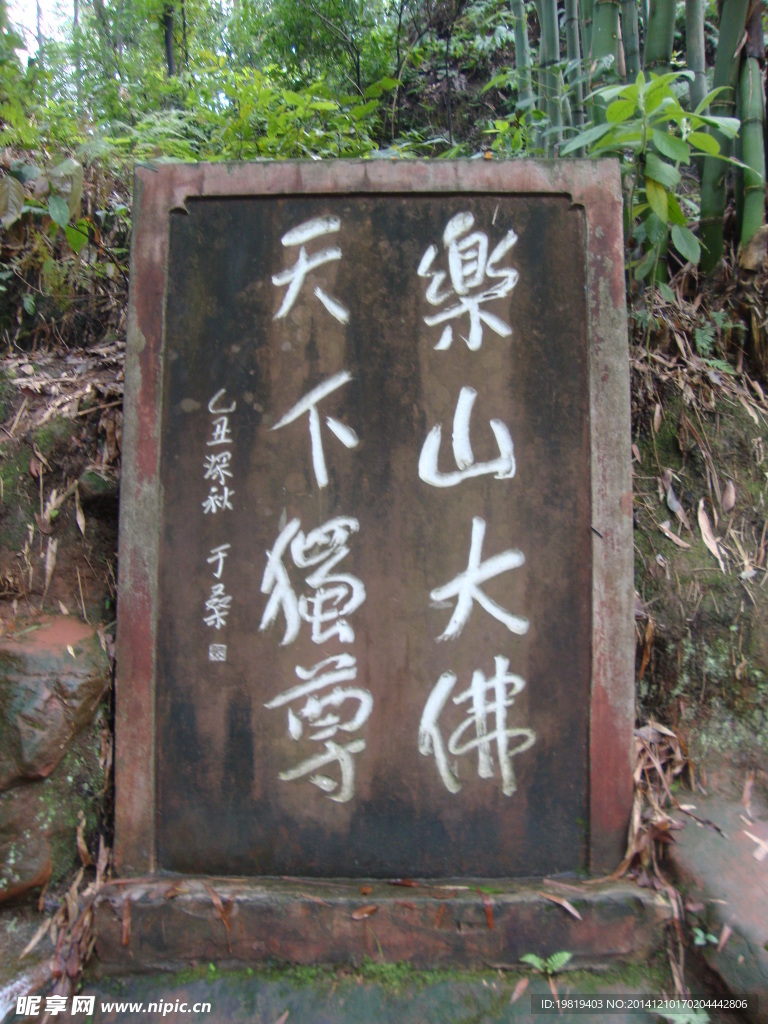 樂山大佛
天下獨尊
乙丑深秋 于桑
昵享网 www.nipic.cn
ID:19819403 NO:20141210170204442806